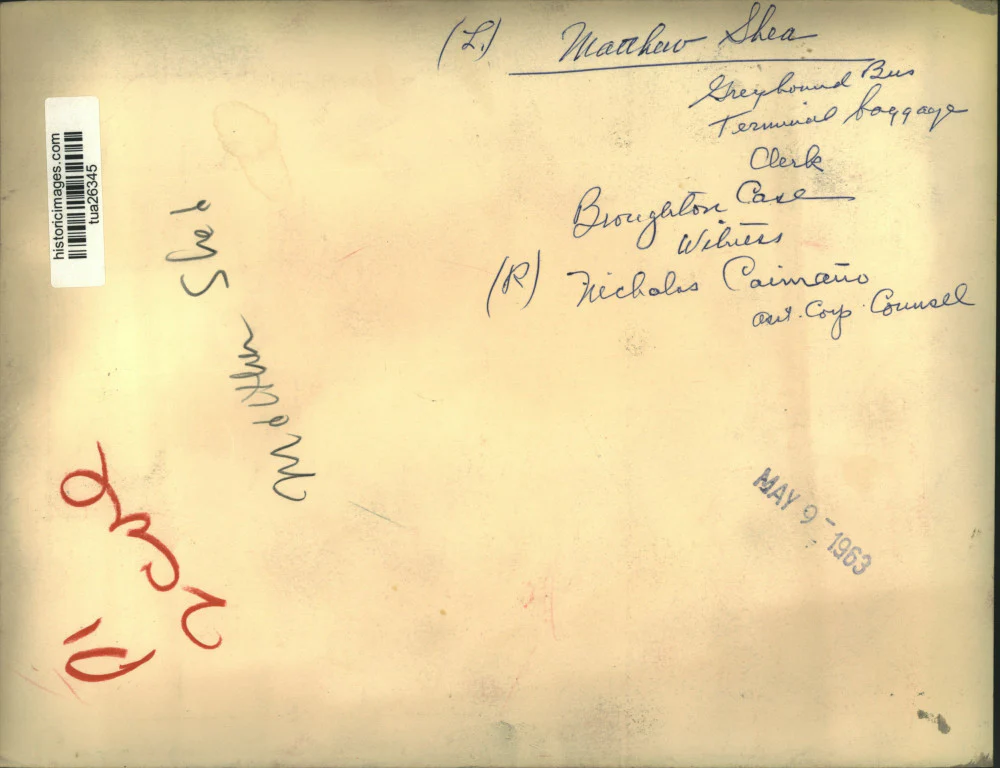 (L.) Matthew Shea
Greyhound Bus
Terminal baggage
Clerk
Broughton Case
Witness
(R) Nicholas Caimano
asst. Corp. Counsel
historicimages.com
tua26345
Matthew Shea
MAY 9 - 1963